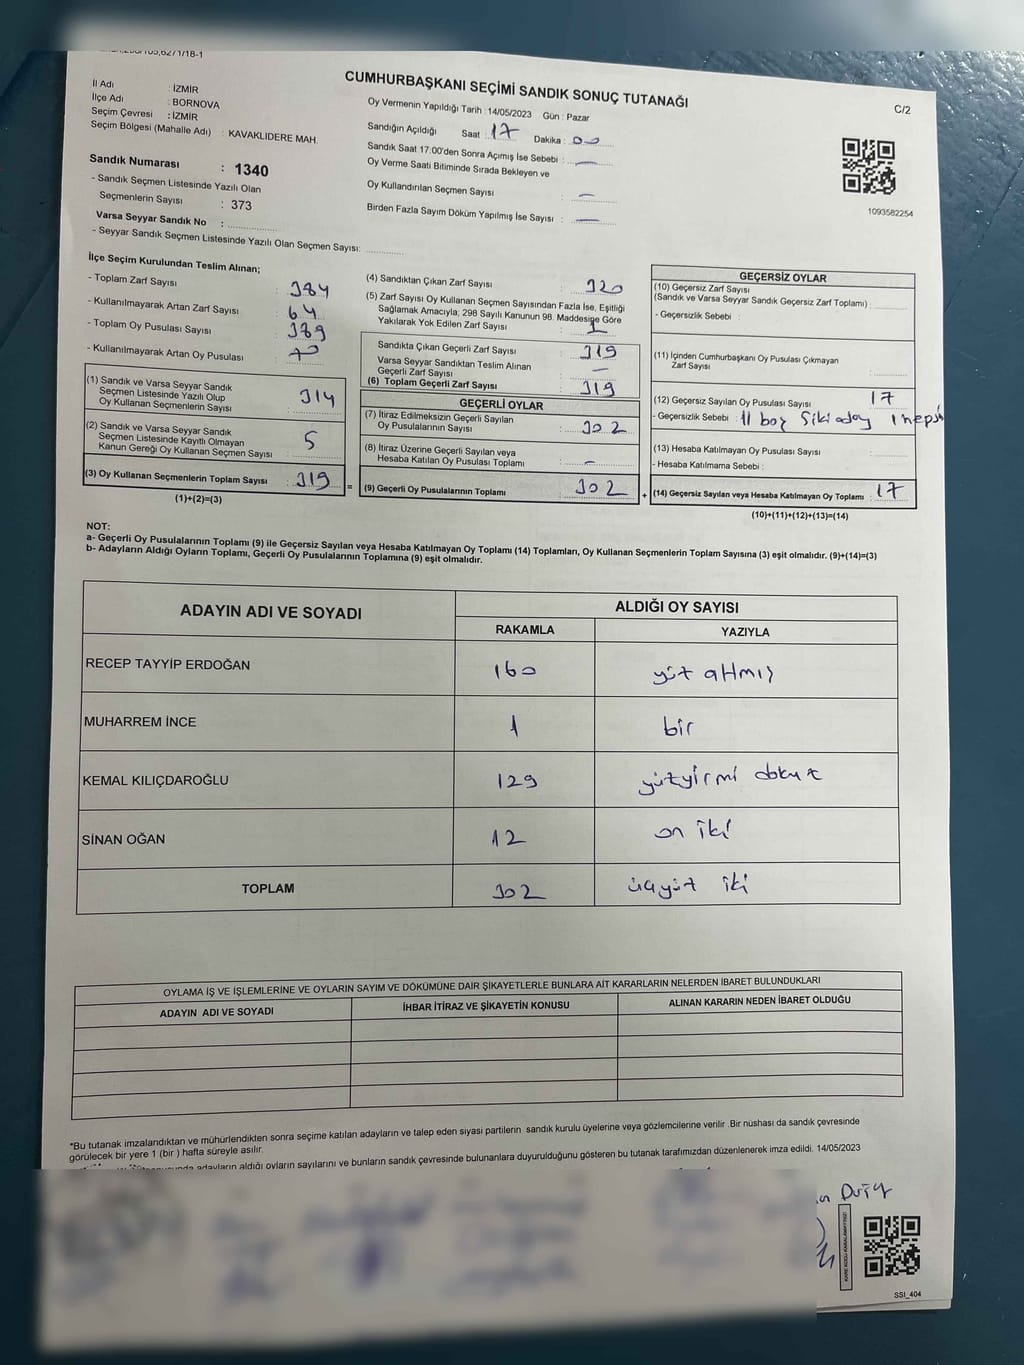 CUMHURBAŞKANI SEÇİMİ SANDIK SONUÇ TUTANAĞI
C/2
İl Adı : İZMİR
İlçe Adı : BORNOVA
Seçim Çevresi : İZMİR
Seçim Bölgesi (Mahalle Adı) : KAVAKLIDERE MAH.
Sandık Numarası : 1340
- Sandık Seçmen Listesinde Yazılı Olan
Seçmenlerin Sayısı : 373
Varsa Seyyar Sandık No :
- Seyyar Sandık Seçmen Listesinde Yazılı Olan Seçmen Sayısı:
Oy Vermenin Yapıldığı Tarih : 14/05/2023 Gün : Pazar
Sandığın Açıldığı Saat : 17 Dakika : 00
Sandık Saat 17:00'den Sonra Açımış İse Sebebi : —
Oy Verme Saati Bitiminde Sırada Bekleyen ve
Oy Kullandırılan Seçmen Sayısı : —
Birden Fazla Sayım Döküm Yapılmış İse Sayısı : —
1093582254
İlçe Seçim Kurulundan Teslim Alınan;
- Toplam Zarf Sayısı : 384
- Kullanılmayarak Artan Zarf Sayısı : 64
- Toplam Oy Pusulası Sayısı : 389
- Kullanılmayarak Artan Oy Pusulası : 70
(1) Sandık ve Varsa Seyyar Sandık
Seçmen Listesinde Yazılı Olup
Oy Kullanan Seçmenlerin Sayısı : 314
(2) Sandık ve Varsa Seyyar Sandık
Seçmen Listesinde Kayıtlı Olmayan
Kanun Gereği Oy Kullanan Seçmen Sayısı : 5
(3) Oy Kullanan Seçmenlerin Toplam Sayısı : 319
(1)+(2)=(3)
(4) Sandıktan Çıkan Zarf Sayısı : 320
(5) Zarf Sayısı Oy Kullanan Seçmen Sayısından Fazla İse, Eşitliği
Sağlamak Amacıyla; 298 Sayılı Kanunun 98. Maddesine Göre
Yakılarak Yok Edilen Zarf Sayısı : 1
Sandıkta Çıkan Geçerli Zarf Sayısı : 319
Varsa Seyyar Sandıktan Teslim Alınan
Geçerli Zarf Sayısı : —
(6) Toplam Geçerli Zarf Sayısı : 319
GEÇERLİ OYLAR
(7) İtiraz Edilmeksizin Geçerli Sayılan
Oy Pusulalarının Sayısı : 302
(8) İtiraz Üzerine Geçerli Sayılan veya
Hesaba Katılan Oy Pusulası Toplamı : —
= (9) Geçerli Oy Pusulalarının Toplamı : 302
GEÇERSİZ OYLAR
(10) Geçersiz Zarf Sayısı
(Sandık ve Varsa Seyyar Sandık Geçersiz Zarf Toplamı) :
- Geçersizlik Sebebi :
(11) İçinden Cumhurbaşkanı Oy Pusulası Çıkmayan
Zarf Sayısı :
(12) Geçersiz Sayılan Oy Pusulası Sayısı : 17
- Geçersizlik Sebebi : 11 boş 5 iki aday 1 hepsi
(13) Hesaba Katılmayan Oy Pusulası Sayısı :
- Hesaba Katılmama Sebebi :
+ (14) Geçersiz Sayılan veya Hesaba Katılmayan Oy Toplamı : 17
(10)+(11)+(12)+(13)=(14)
NOT:
a- Geçerli Oy Pusulalarının Toplamı (9) ile Geçersiz Sayılan veya Hesaba Katılmayan Oy Toplamı (14) Toplamları, Oy Kullanan Seçmenlerin Toplam Sayısına (3) eşit olmalıdır. (9)+(14)=(3)
b- Adayların Aldığı Oyların Toplamı, Geçerli Oy Pusulalarının Toplamına (9) eşit olmalıdır.
ADAYIN ADI VE SOYADI ALDIĞI OY SAYISI
RAKAMLA YAZIYLA
RECEP TAYYİP ERDOĞAN 160 yüz altmış
MUHARREM İNCE 1 bir
KEMAL KILIÇDAROĞLU 129 yüzyirmi dokuz
SİNAN OĞAN 12 on iki
TOPLAM 302 üçyüz iki
OYLAMA İŞ VE İŞLEMLERİNE VE OYLARIN SAYIM VE DÖKÜMÜNE DAİR ŞİKAYETLERLE BUNLARA AİT KARARLARIN NELERDEN İBARET BULUNDUKLARI
ADAYIN ADI VE SOYADI İHBAR İTİRAZ VE ŞİKAYETİN KONUSU ALINAN KARARIN NEDEN İBARET OLDUĞU
*Bu tutanak imzalandıktan ve mühürlendikten sonra seçime katılan adayların ve talep eden siyasi partilerin sandık kurulu üyelerine veya gözlemcilerine verilir .Bir nüshası da sandık çevresinde
görülecek bir yere 1 (bir ) hafta süreyle asılır.
adayların aldığı oyların sayılarını ve bunların sandık çevresinde bulunanlara duyurulduğunu gösteren bu tutanak tarafımızdan düzenlenerek imza edildi. 14/05/2023
SSI_404